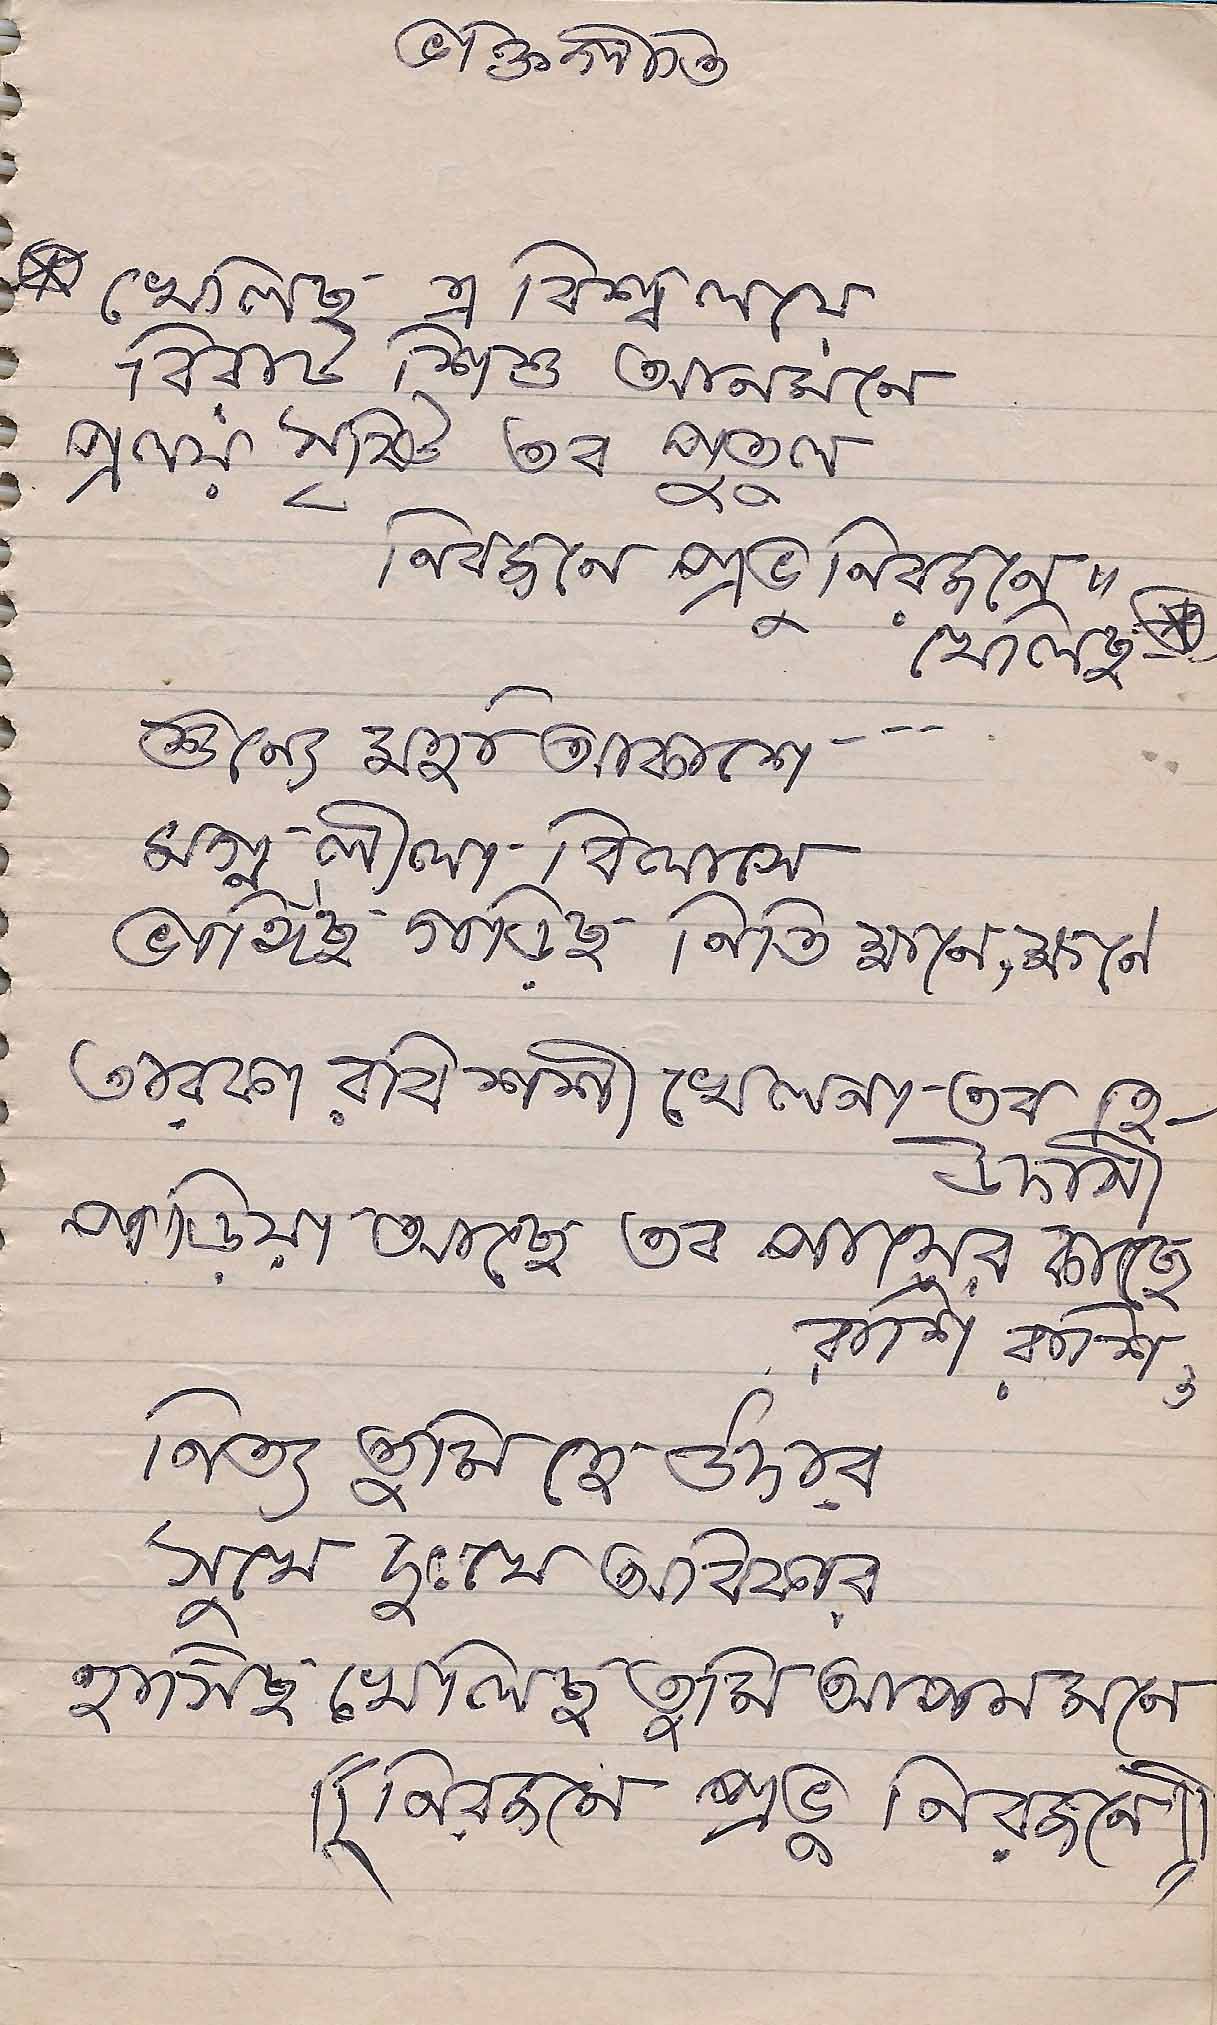 ভক্তিগীতি
খেলিছ এ বিশ্ব লয়ে
বিরাট শিশু আনমনে
প্রলয় সৃষ্টি তব পুতুল
নিরজনে প্রভু নিরজনে॥
খেলিছ
শুন্যে মহা আকাশে ---
মগ্ন লীলা বিলাসে
ভাঙ্গিছ গড়িছ নিতি ক্ষনে, ক্ষনে
তারকা রবি শশী খেলনা তব হে
উদাসী
পড়িয়া আছে তব পায়ের কাছে
রাশি রাশি,
নিত্য তুমি হে উদার
সুখে দুঃখে অবিকার
হাসিছ খেলিছ তুমি আপন মনে
(নিরজনে প্রভু নিরজনে)